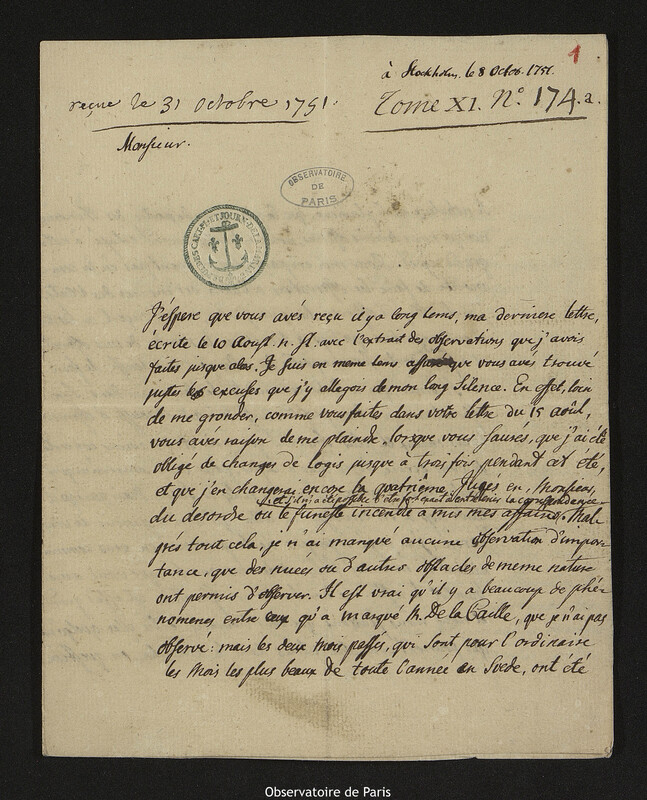 1
à Stockholm. le 8 Octob. 1751.
reçue le 31 octobre 1751.
Tome XI. N.° 174.a.
Monsieur.
OBSERVATOIRE
DE
PARIS
J'éspere que vous avés reçu il y a long tems, ma derniere lettre,
ecrite le 10 Aoust. n. st. avec l'extrait des observations que j'avois
faites jusque alors. Je suis en meme tems assuré que vous avés trouvé
justes les excuses que j'y allegois de mon long silence. En effet, loin
de me gronder, comme vous faites dans votre lettre du 15 août,
vous avés raison de me plaindre, lorsque vous saurés, que j'ai été
obligé de changer de logis jusque à trois fois pendant cet été,
et que j'en changerai encore la quatrième. Jugés en, Monsieur,
et s'il m'a eté possible d'entretenir la correspondence
du desordre ou le funeste incendie a mis mes affaires. Mal-
grés tout cela, je n'ai manqué aucune observation d'impor-
tance, que des nuées ou d'autres obstacles de meme nature
ont permis d'observer. Il est vrai qu'il y a beaucoup de phé-
nomenes entre ceux qu'a marqué M. De la Caille, que je n'ai pas
observé: mais les deux mois passés, qui sont pour l'ordinaire
les mois les plus beaux de toute l'année en Suede, ont été
Observatoire de Paris